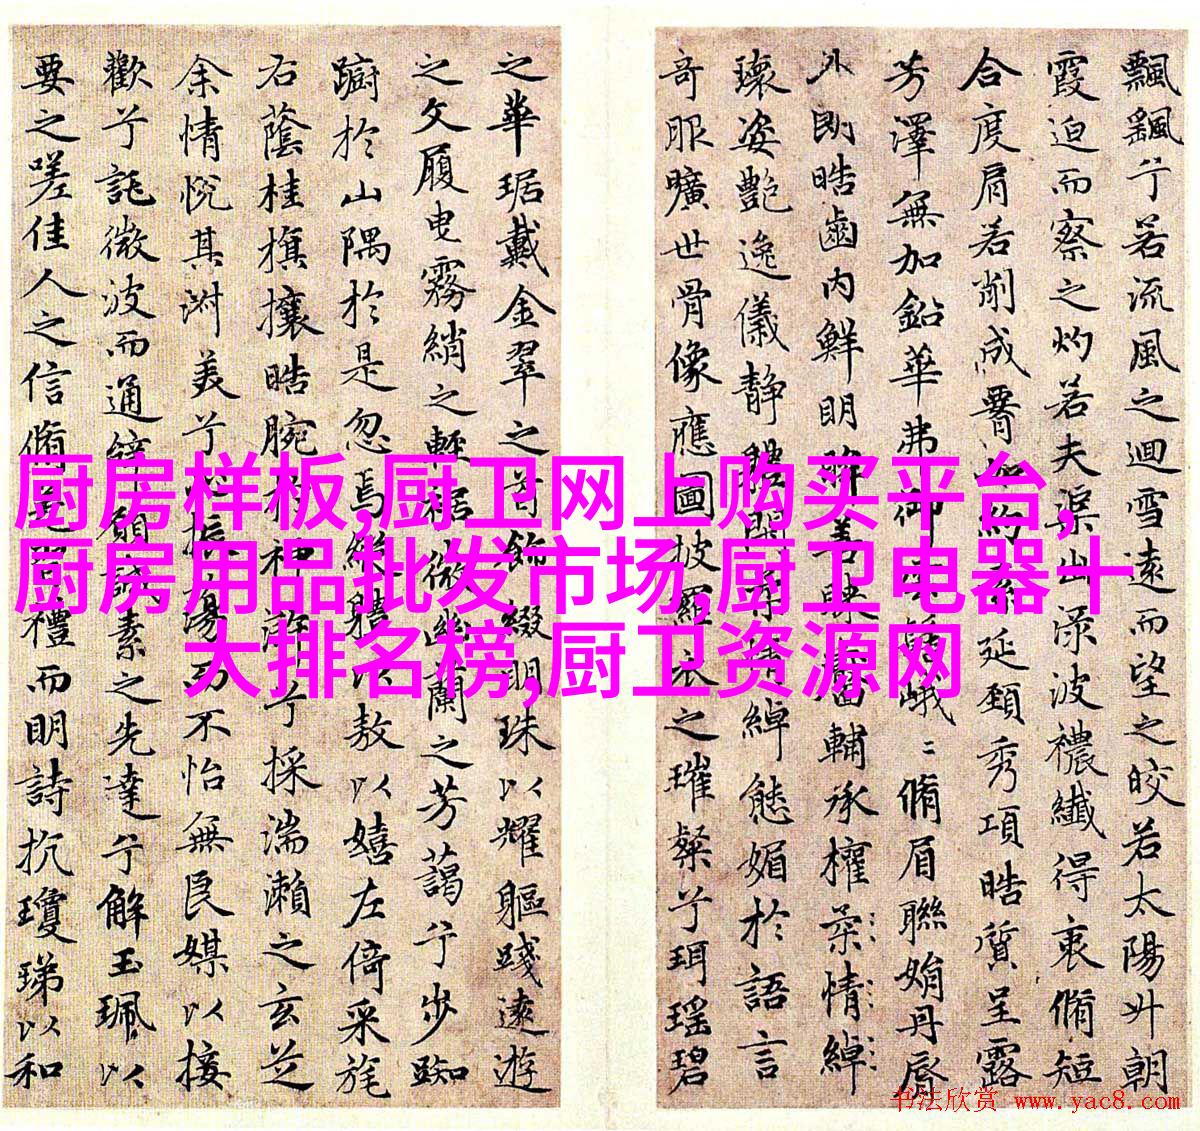 飄颻兮若流風之迴雪遠而望之皎若太陽升朝
霞迫而察之灼若夫渠出渌波襛纖得衷脩短
合度肩若削成如約素延頸秀項皓質呈露
芳澤無加鉛華弗御雲髻峨〻脩眉聯娟丹脣
外朗皓齒内鮮明眸善睞靨輔承權柔情綽
瓌姿艷逸儀靜體閑柔情綽態媚於語言
奇服曠世骨像應圖披羅衣之璀粲兮珥瑤碧
之華琚戴金翠之首飾綴明珠以耀軀踐遠遊
之文履曳霧綃之輕裾微幽蘭之芳藹兮步踟
躕於山隅於是忽焉縱體以敖以嬉左倚采旄
右蔭桂旗攘皓腕於神滸兮採湍瀨之玄芝
余情悅其淑美兮心振蕩而不怡無良媒以接
歡兮託微波而通辭願誠素之先達兮解玉珮以
要之嗟佳人之信脩羌習禮而明詩抗瓊珶以和
厨房样板,厨卫网上购买平台,
厨房用品批发市场,厨卫电器十
大排名榜,厨卫资源网
书法欣赏 www.yac8.com